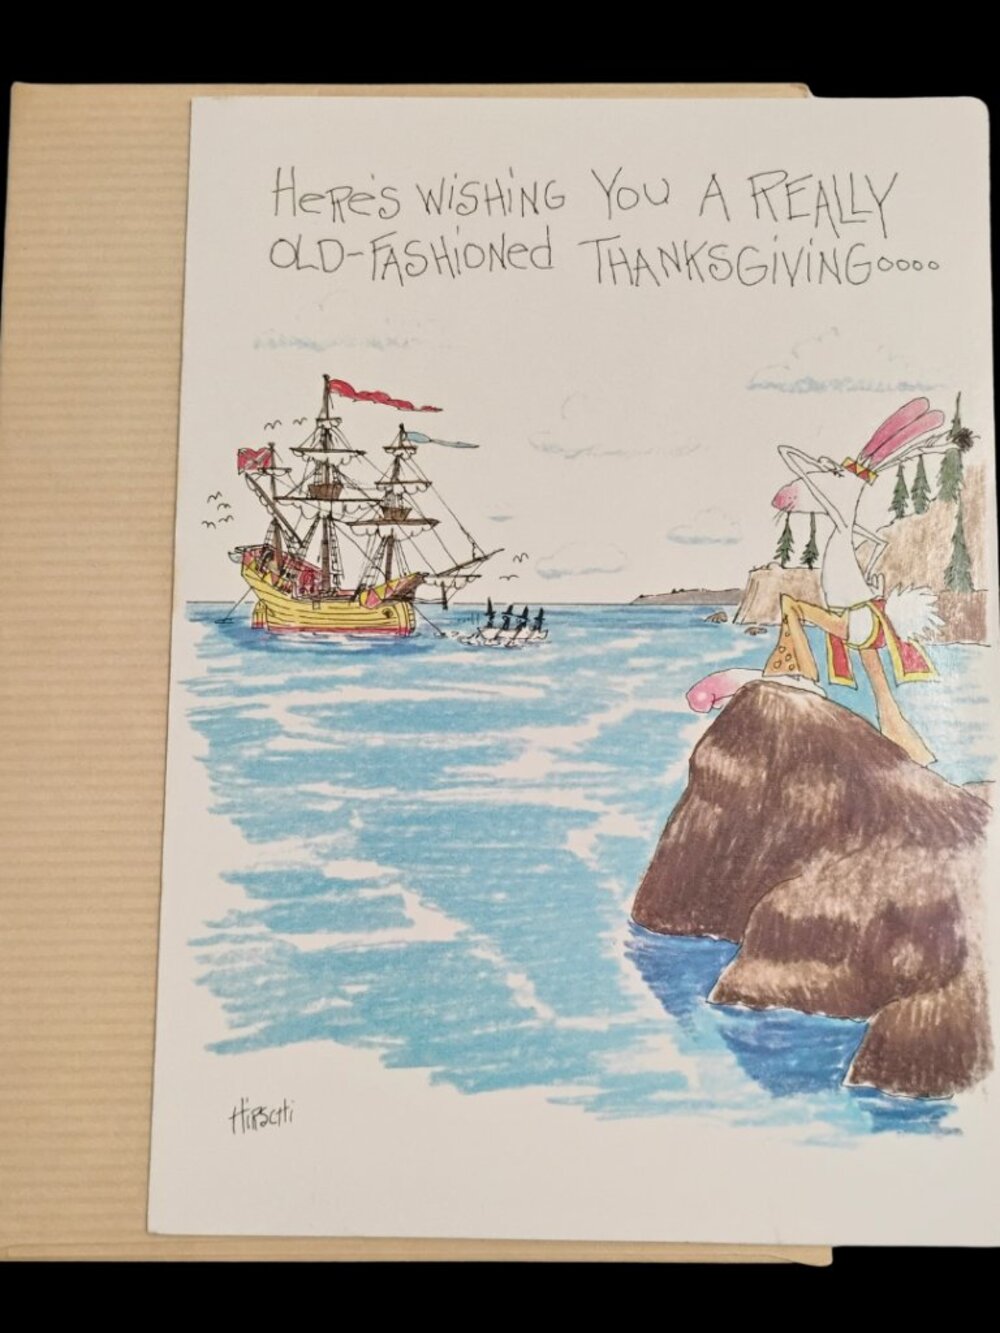 HERE'S WISHING YOU A REALLY
OLD-FASHIONED THANKSGIVING....
HIRSCHI